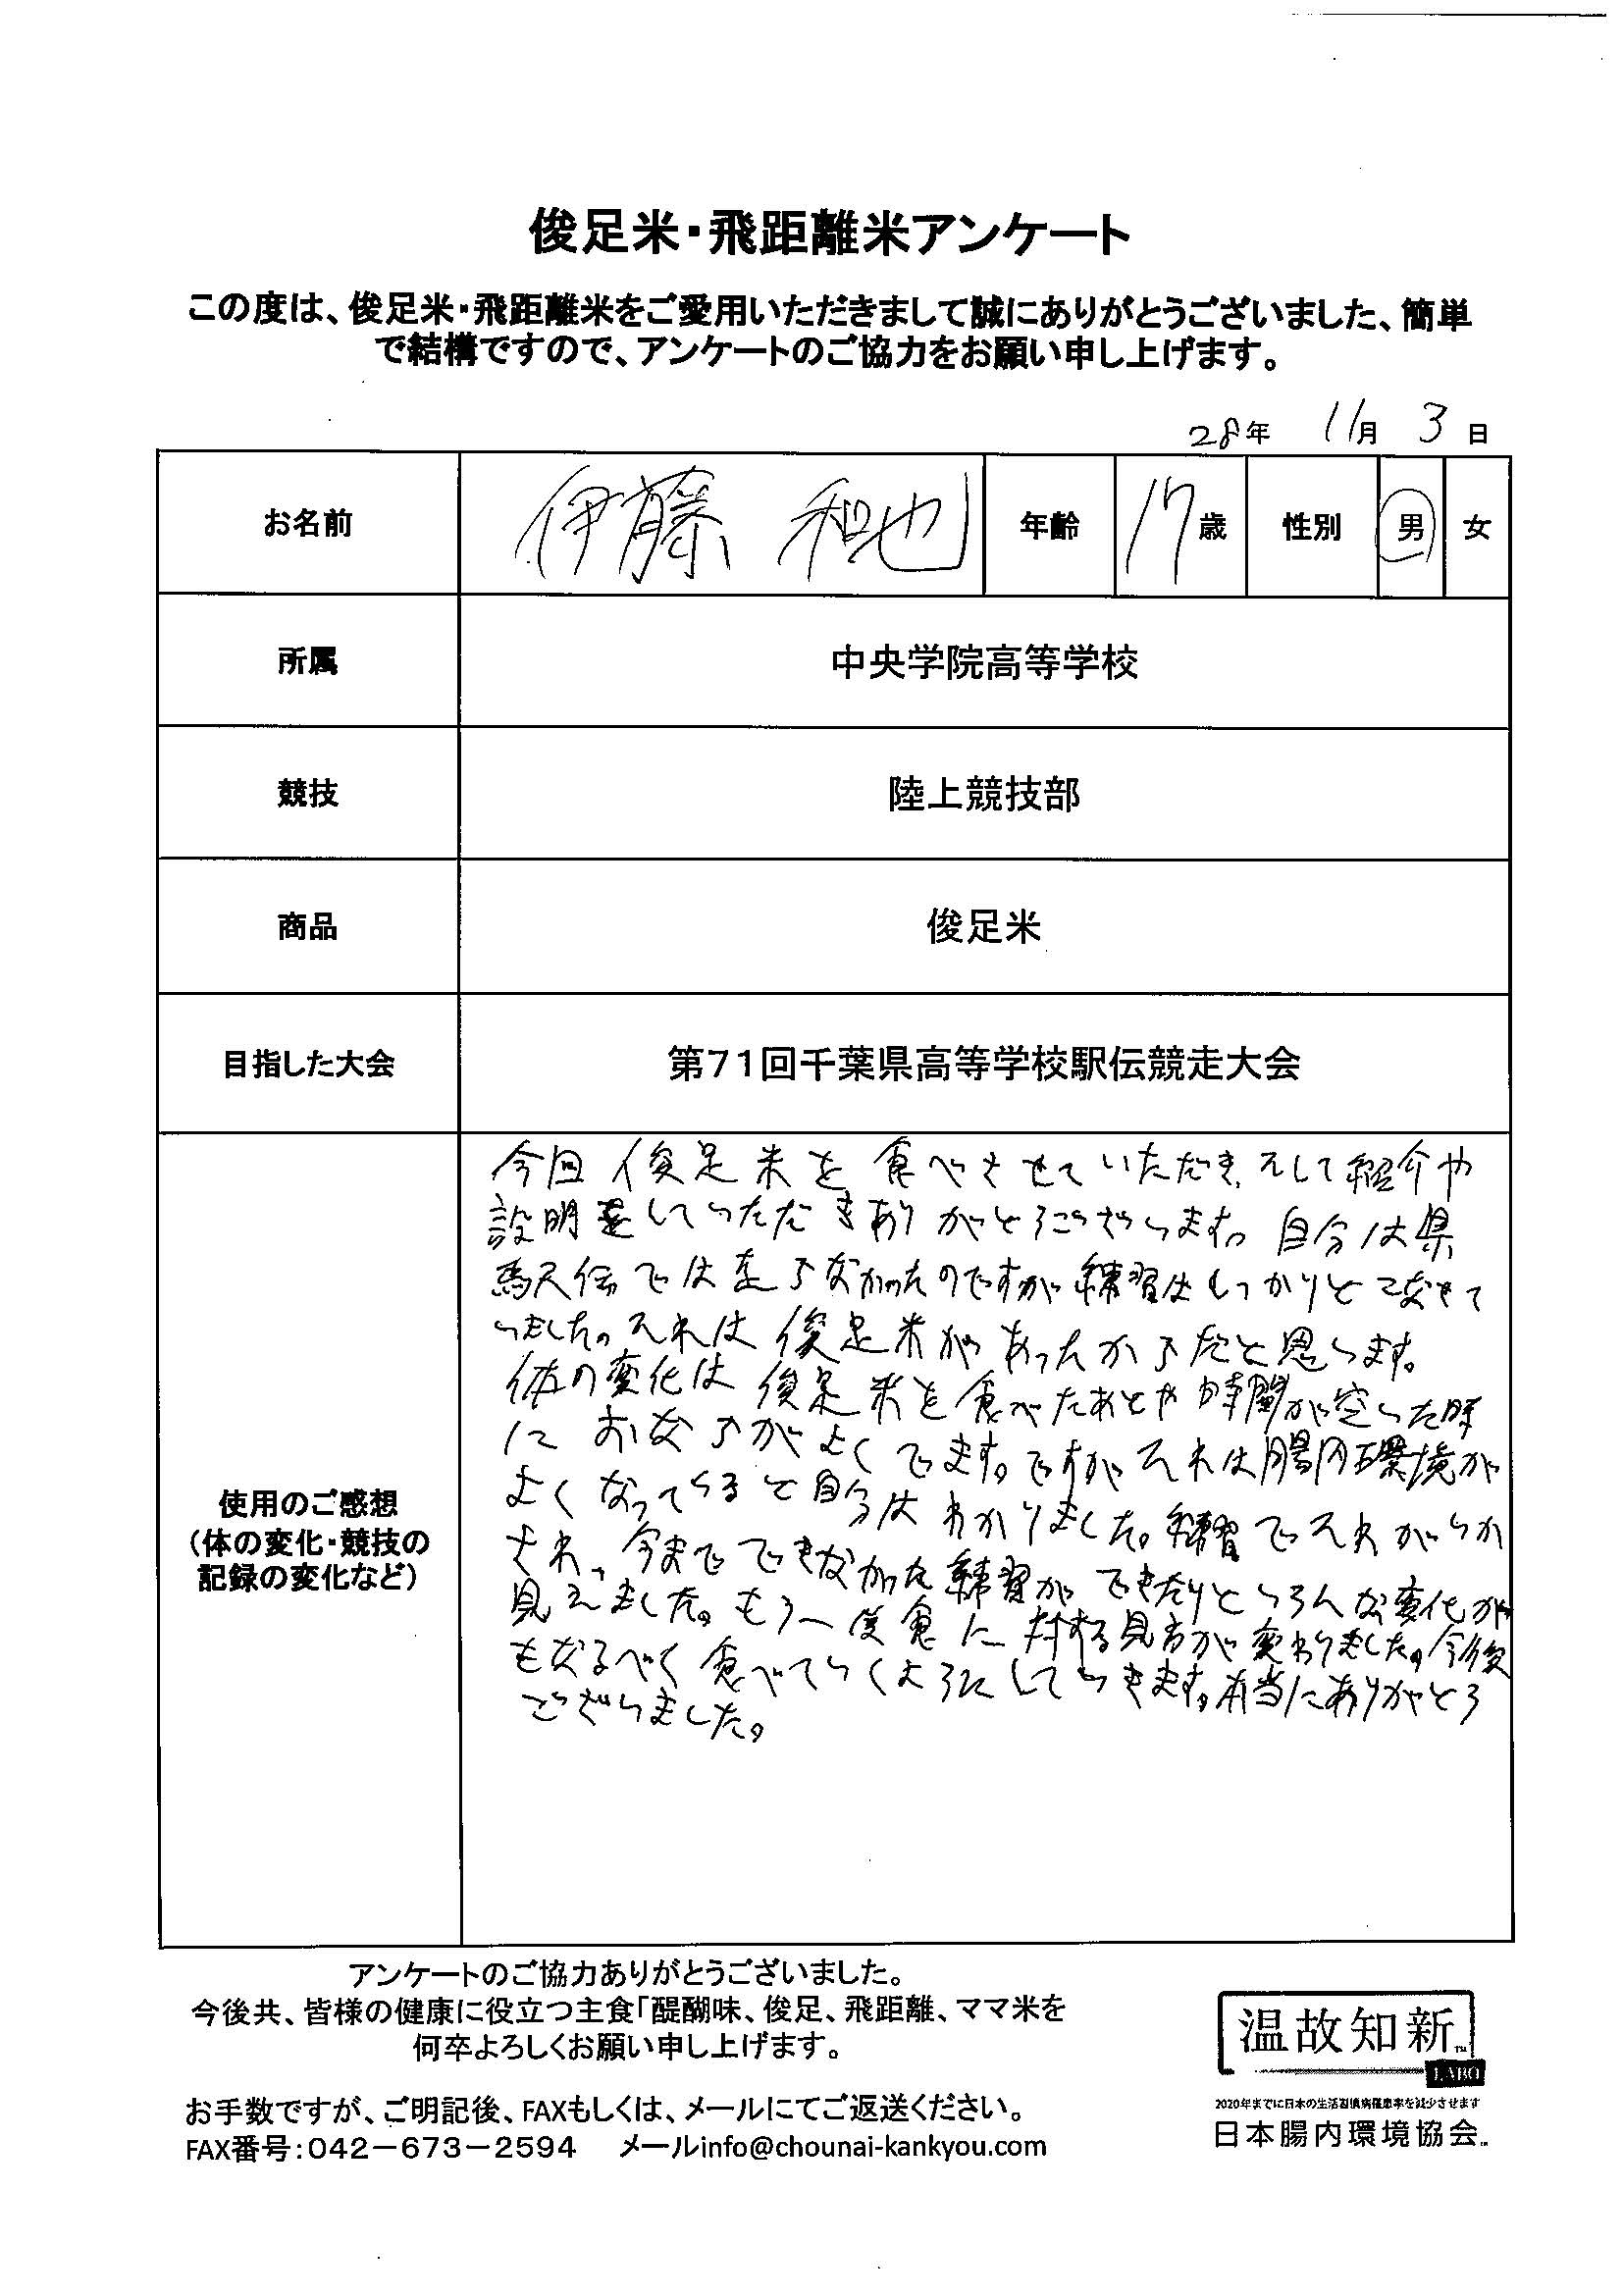 俊足米・飛距離米アンケート
この度は、俊足米・飛距離米をご愛用いただきまして誠にありがとうございました、簡単
で結構ですので、アンケートのご協力をお願い申し上げます。
28年 11月 3日
お名前 伊藤 和也 年齢 17歳 性別 男 女
所属 中央学院高等学校
競技 陸上競技部
商品 俊足米
目指した大会 第71回千葉県高等学校駅伝競走大会
使用のご感想
(体の変化・競技の
記録の変化など)
今回俊足米を食べさせていただき、そして紹介や
説明をしていただきありがとうございます。自分は県
駅伝では走らなかったのですが練習はしっかりとこなせて
いました。それは俊足米があったからだと思います。
体の変化は俊足米を食べたあとや時間が空いた時
におならがよくでます。ですがそれは腸内環境が
よくなっていると自分はわかりました。練習でそれがいか
され、今までできなかった練習ができたりといろんな変化が
見えました。もう一度食に対する見方が変わりました。今後
もなるべく食べていくようにしていきます。本当にありがとう
ございました。
アンケートのご協力ありがとうございました。
今後共、皆様の健康に役立つ主食「醍醐味、俊足、飛距離、ママ米を
何卒よろしくお願い申し上げます。
お手数ですが、ご明記後、FAXもしくは、メールにてご返送ください。
FAX番号:042-673-2594 メールinfo@chounai-kankyou.com
温故知新™
LABO
2020年までに日本の生活習慣病罹患率を減少させます
日本腸内環境協会